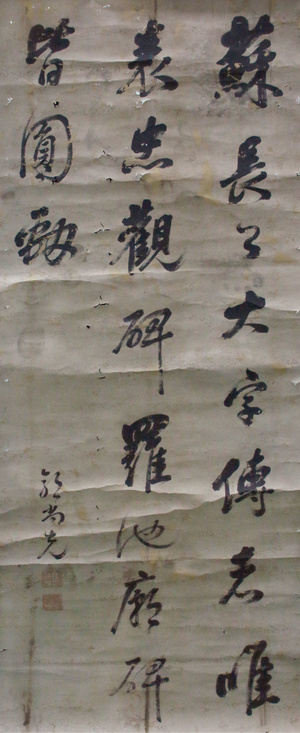 蘇長公大字傳者唯
表忠觀碑羅池廟碑
皆圓勁
郭尚先